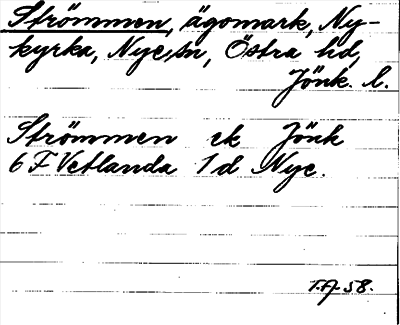 Strömmen, ägomark, Ny-
kyrka, Nye sn, Östra hd,
Jönk. l.
Strömmen ek Jönk
6 F Vetlanda 1 d Nye.
T.A. 58.